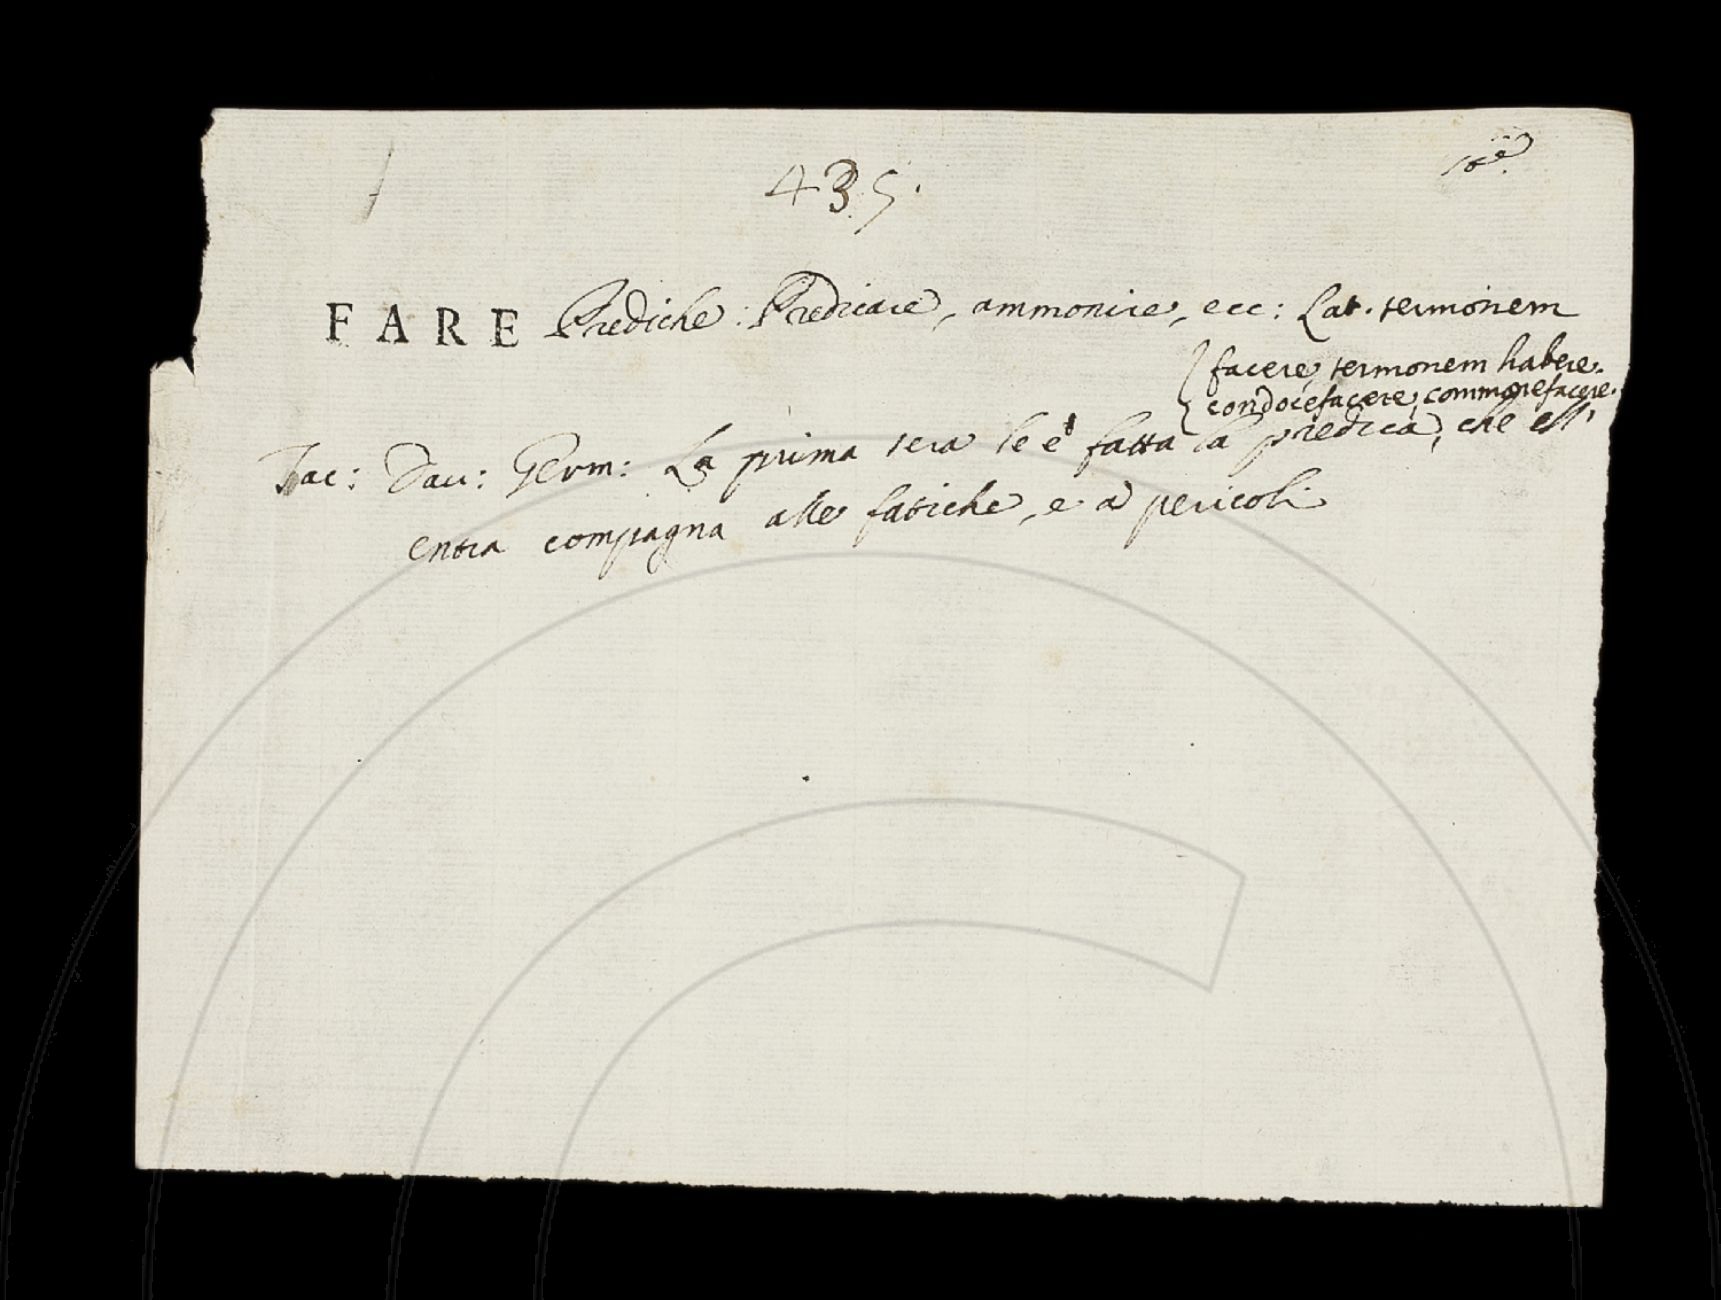 435.
FARE Prediche: Predicare, ammonire, ecc: Lat. sermonem
facere, sermonem habere.
condocefacere, commonefacere.
Tac: Dav: Germ: La prima sera le è fatta la predica, che ell'
entra compagna alle fatiche, e a pericoli